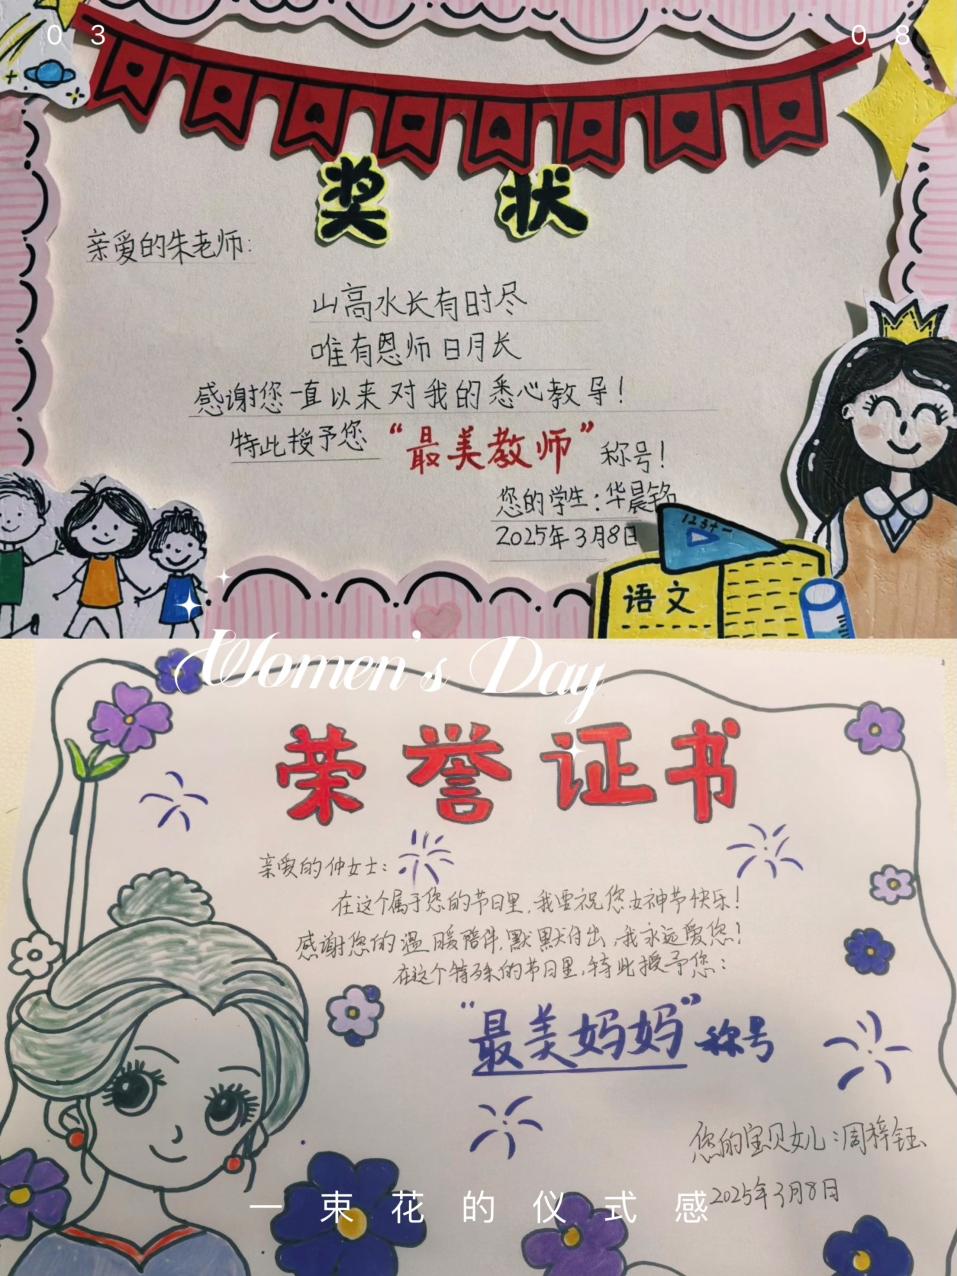 03 08
奖 状
亲爱的朱老师:
山高水长有时尽
唯有恩师日月长
感谢您一直以来对我的悉心教导!
特此授予您“最美教师”称号!
您的学生:华晨铭
2025年3月8日
语文
Women's Day
荣誉证书
亲爱的仲女士:
在这个属于您的节日里,我要祝您女神节快乐!
感谢您的温暖陪伴,默默付出,我永远爱您!
在这个特殊的节日里,特此授予您:
“最美妈妈”称号
您的宝贝女儿:周梓钰
2025年3月8日
一束花的仪式感